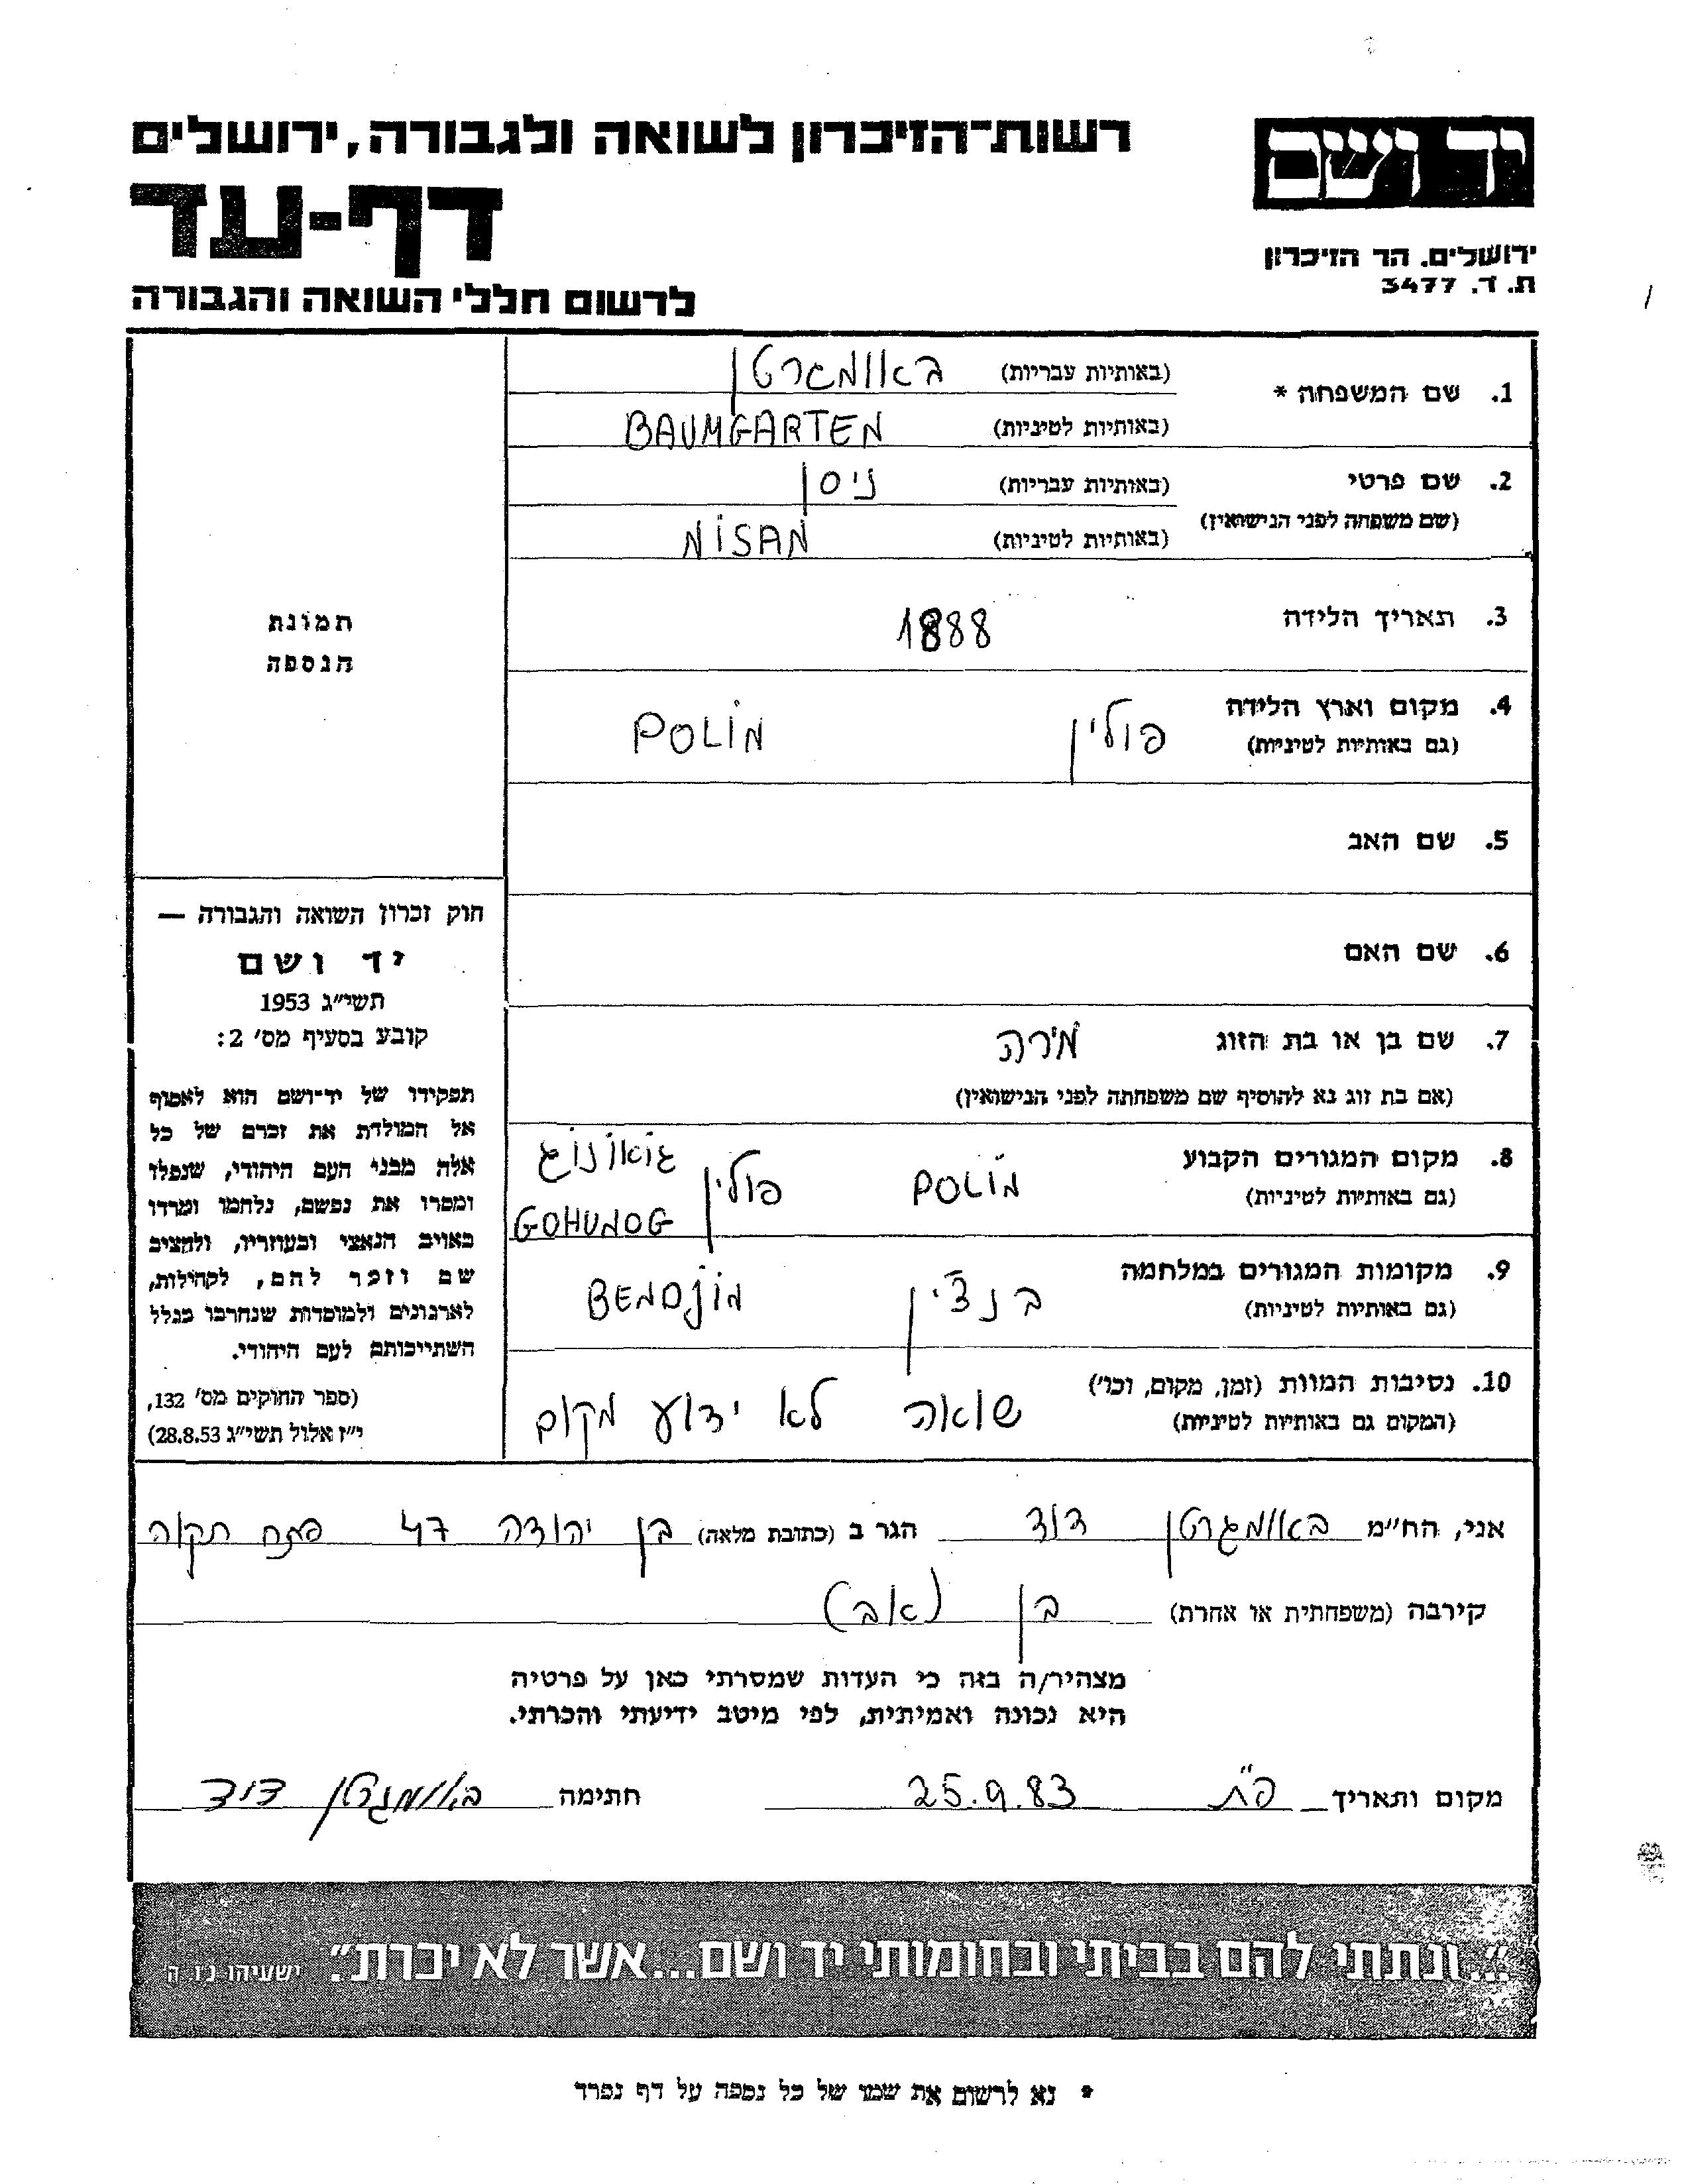 רשות־הזיכרון לשואה ולגבורה, ירושלים
דף-עד
לרשום חללי השואה והגבורה
יד ושם
ירושלים. הר הזיכרון
ת. ד. 3477
1. שם המשפחה * (באותיות עבריות) באומגרטן
(באותיות לטיניות) BAUMGARTEN
2. שם פרטי (באותיות עבריות) ניסן
(שם משפחה לפני הנישואין) (באותיות לטיניות) NiSAN
3. תאריך הלידה 1888
4. מקום וארץ הלידה פולין POLiN
(גם באותיות לטיניות)
5. שם האב
6. שם האם
7. שם בן או בת הזוג מירה
(אם בת זוג נא להוסיף שם משפחתה לפני הנישואין)
8. מקום המגורים הקבוע POLiN פולין
(גם באותיות לטיניות) GOHUNOG
9. מקומות המגורים במלחמה בנצ'ין BENDJiN
(גם באותיות לטיניות)
10. נסיבות המוות (זמן, מקום, וכו') שואה לא ידוע מקום
(המקום גם באותיות לטיניות)
תמונת
הנספה
חוק זכרון השואה והגבורה —
יד ושם
תשי״ג 1953
קובע בסעיף מס' 2:
תפקידו של יד־ושם הוא לאסוף
אל המולדת את זכרם של כל
אלה מבני העם היהודי, שנפלו
ומסרו את נפשם, נלחמו ומרדו
באויב הנאצי ובעוזריו, ולהציב
שם וזכר להם, לקהילות,
לארגונים ולמוסדות שנחרבו בגלל
השתייכותם לעם היהודי.
(ספר החוקים מס' 132,
י״ז אלול תשי״ג 28.8.53)
אני, הח״מ באומגרטן דוד הגר ב (כתובת מלאה) בן יהודה 47 פתח תקוה
קירבה (משפחתית או אחרת) בן (אב)
מצהיר/ה בזה כי העדות שמסרתי כאן על פרטיה
היא נכונה ואמיתית, לפי מיטב ידיעתי והכרתי.
מקום ותאריך פ״ת 25.9.83 חתימה באומגרטן דוד
״...ונתתי להם בביתי ובחומותי יד ושם...אשר לא יכרת״. ישעיהו נו ה'
* נא לרשום את שמו של כל נספה על דף נפרד